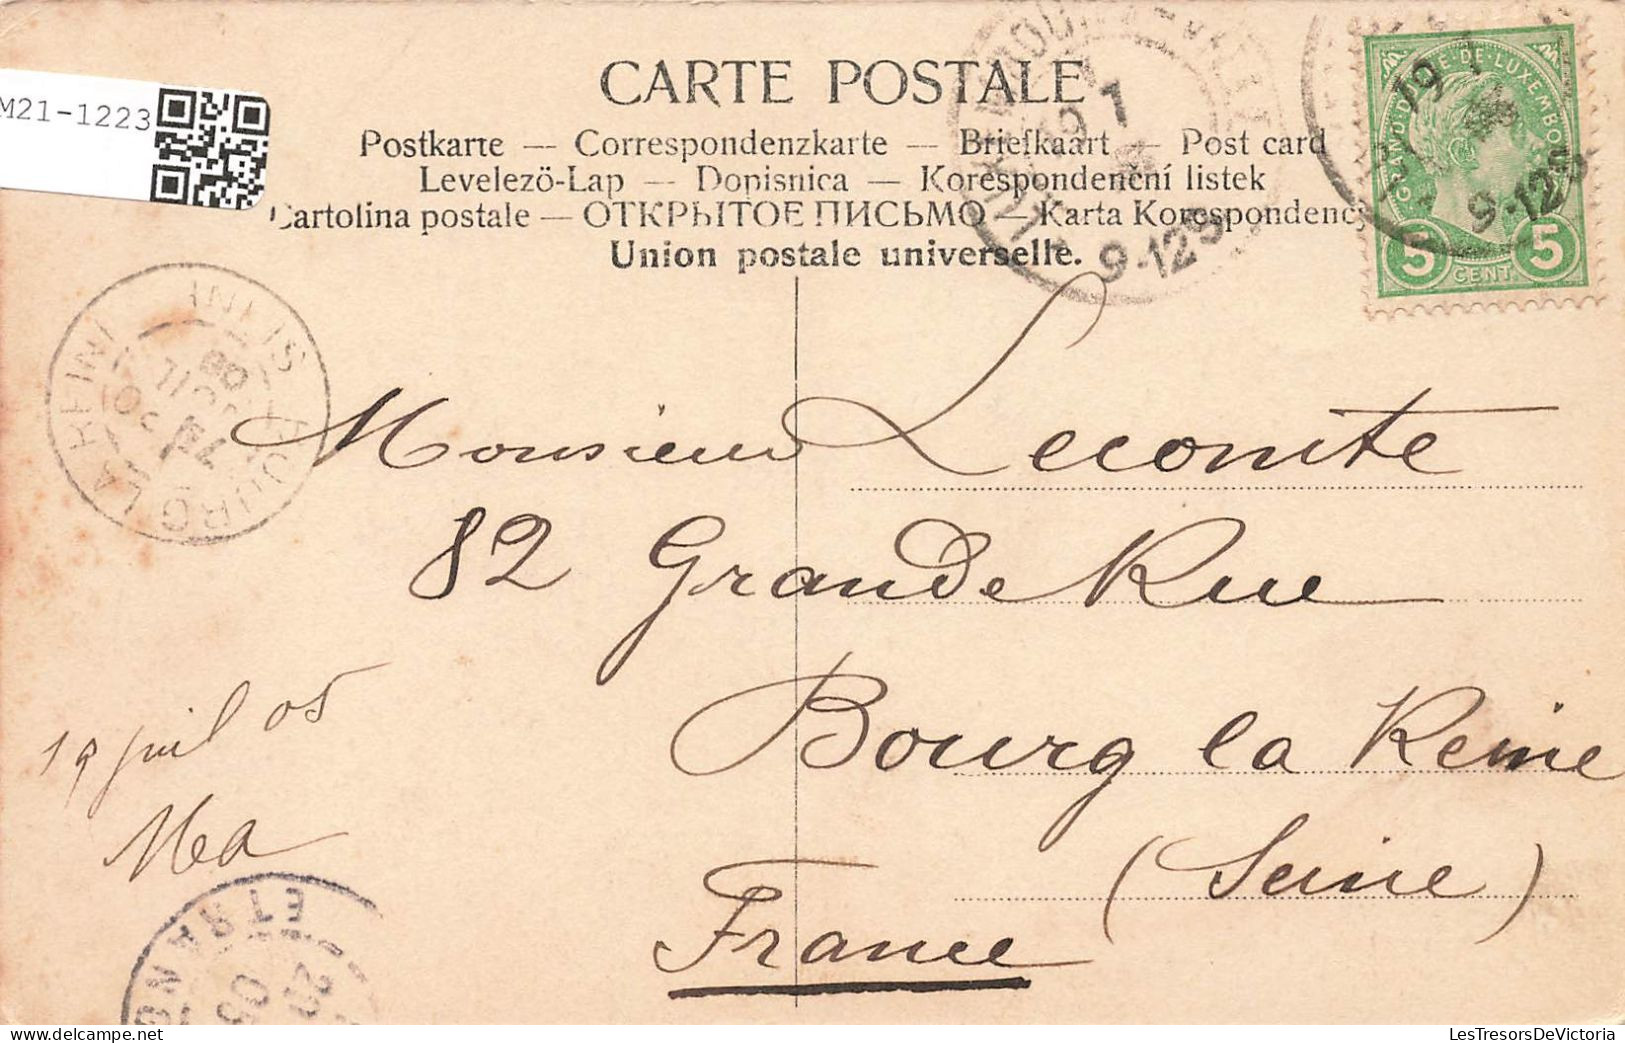 M21-1223
CARTE POSTALE
Postkarte — Correspondenzkarte — Briefkaart — Post card
Levelezö-Lap — Dopisnica — Korespondenční listek
Cartolina postale — ОТКРЫТОЕ ПИСЬМО — Karta Korespondenc
Union postale universelle.
GRAND DUCHE DE LUXEMBOURG
5 CENT 5
19 7
9-12S
9-12S
BOURG LA REINE
SEINE
Monsieur Lecomte
82 Grande Rue
Bourg la Reine
(Seine)
France
19 juil 05
ETRANG
20
05
LesTresorsDeVictoria